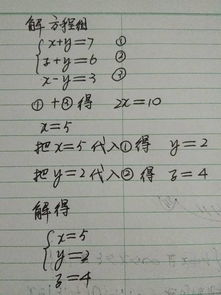 解方程组
x+y=7 ①
z+y=6 ②
x-y=3 ③
①+③得 2x=10
x=5
把x=5代入①得 y=2
把y=2代入②得 z=4
解得
x=5
y=2
z=4